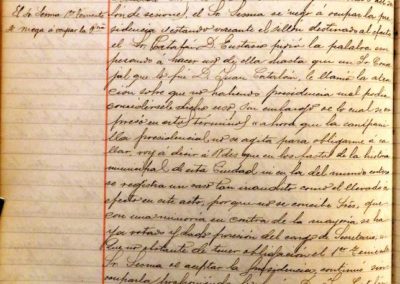 El Sr Sesma 1er Teniente
se nega á ocupar la P.cia
el Sr Sesma se negó á ocupar la pre
sidencia y estando vacante el sillón destinado al efecto
el Sr Catalán D. Eustasio pidió la palabra em
pezando á hacer uso de ella hasta que un Sr Conce
jal que lo fué D. Juan Catalán, le llamó la aten
ción sobre que no habiendo presidencia mal podía
concedérsele dicho uso. Sin embargo de lo cual se ex
presó en estos términos: "ahora que la campani
lla presidencial no se agita para obligarme á ca
llar, voy á decir á Vdes que en los fastos de la historia
municipal de esta Ciudad ni en la del mundo entero
se registra un caso tan inaudito como el llevado á
efecto en este acto, porque no se concibe Sres. que
con una minoría en contra de la mayoría se ha
ya votado y dado posesión del cargo de Secretario.
que no obstante de tener obligación el 1er Teniente
Sr. Sesma el aceptar la presidencia, continuo sin
ocuparla